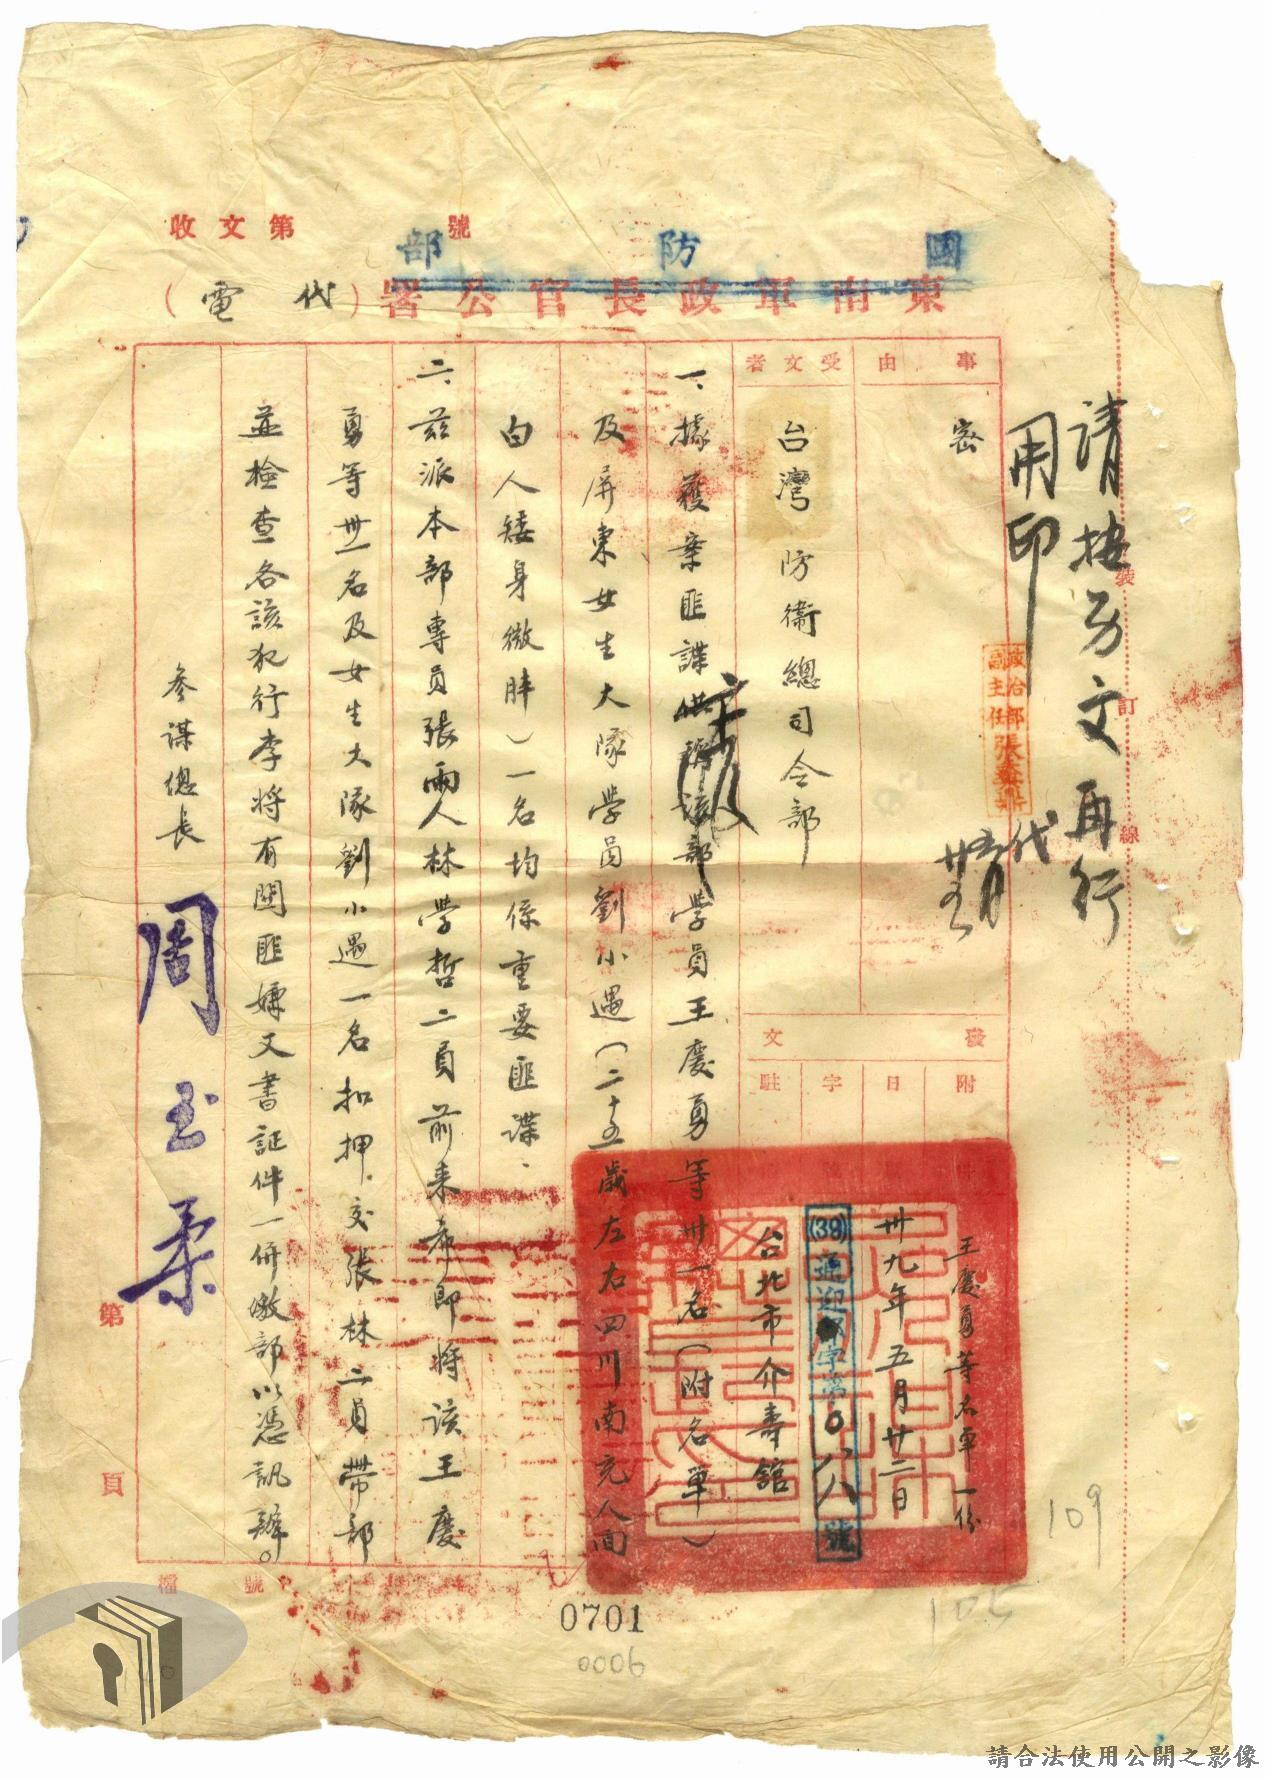 收文第　號
國防部
東南軍政長官公署（代電）
事由
密
受文者
台灣防衞總司令部
發文
附
王慶勇等名單一份
日
卅九年五月廿二日
字
(39)通迎字第〇八八號
駐
台北市介壽館
一、據獲案匪諜供稱該部學員王慶勇等卅一名（附名單）
及屏東女生大隊學員劉小遇（二十五歲左右四川南充人面
白人矮身微胖）一名均係重要匪諜、
二、茲派本部專員張雨人林學哲二員前来希即將該王慶
勇等卅一名及女生大隊劉小遇一名扣押、交張林二員帶部
並檢查各該犯行李將有関匪嫌文書証件一併繳部以憑訊辦。
參謀總長
周至柔
請按另文再行
用印
政治部
副主任張彝鼎
代
裝
訂
線
第
頁
檔　號
109
105
0701
0006
請合法使用公開之影像